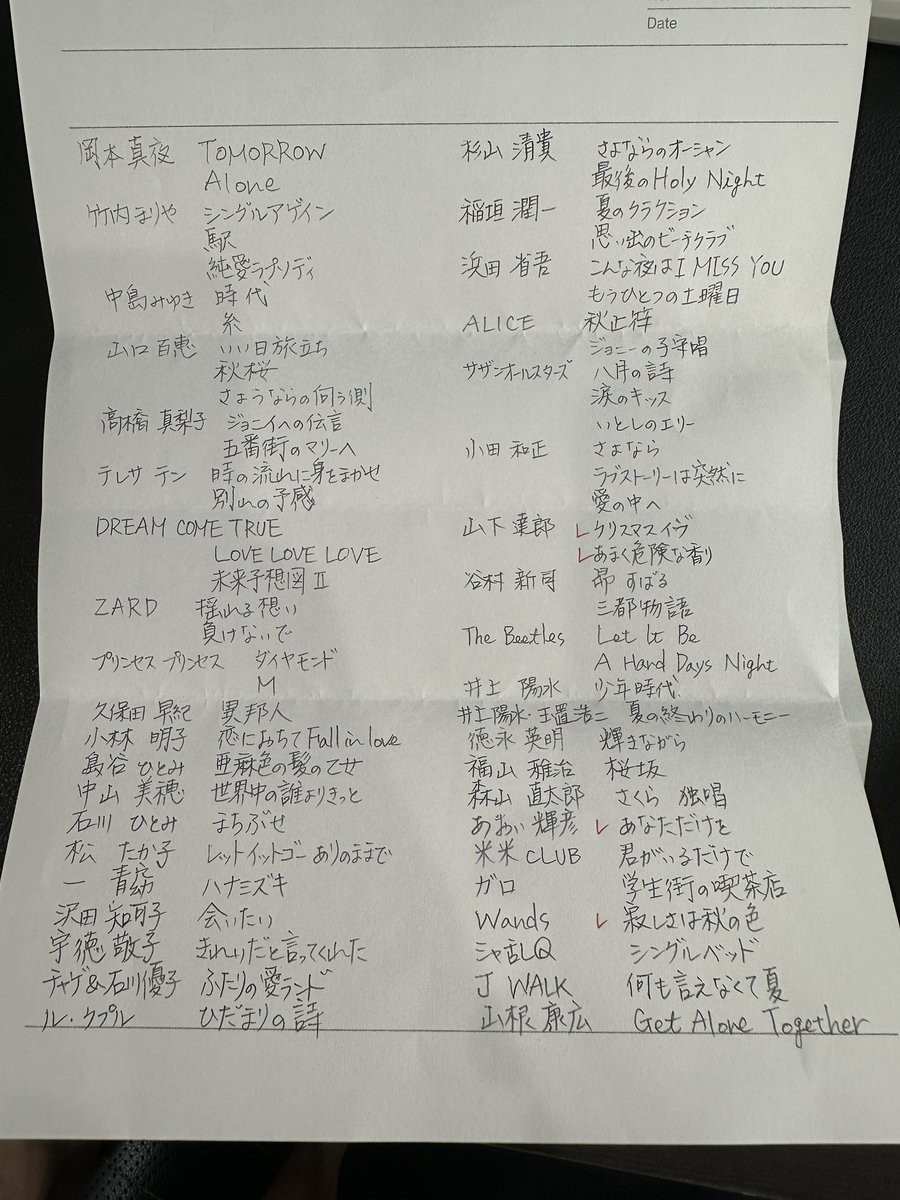 Date
岡本真夜 TOMORROW
Alone
竹内まりや シングルアゲイン
駅
純愛ラプソディ
中島みゆき 時代
糸
山口百恵 いい日旅立ち
秋桜
さようならの向う側
高橋真梨子 ジョニイへの伝言
五番街のマリーへ
テレサ テン 時の流れに身をまかせ
別れの予感
DREAM COME TRUE
LOVE LOVE LOVE
未来予想図 II
ZARD 揺れる想い
負けないで
プリンセス プリンセス ダイヤモンド
M
久保田 早紀 異邦人
小林 明子 恋におちて Fall in love
島谷 ひとみ 亜麻色の髪の乙女
中山 美穂 世界中の誰よりきっと
石川 ひとみ まちぶせ
松 たか子 レットイットゴー ありのままで
一 青窈 ハナミズキ
沢田 知可子 会いたい
宇徳 敬子 きれいだと言ってくれた
チャゲ&石川優子 ふたりの愛ランド
ル・クプル ひだまりの詩
杉山 清貴 さよならのオーシャン
最後のHoly Night
稲垣 潤一 夏のクラクション
思い出のビーチクラブ
浜田 省吾 こんな夜は I MISS YOU
もうひとつの土曜日
ALICE 秋止符
ジョニーの子守唱
サザンオールスターズ 八月の詩
涙のキッス
いとしのエリー
小田 和正 さよなら
ラブストーリーは突然に
愛の中へ
山下 達郎 クリスマスイヴ
あまく危険な香り
谷村 新司 昴 すばる
三都物語
The Beetles Let It Be
A Hand Days Night
井上 陽水 少年時代
井上陽水・玉置浩二 夏の終わりのハーモニー
徳永 英明 輝きながら
福山 雅治 桜坂
森山 直太郎 さくら 独唱
あおい 輝彦 あなただけを
米米 CLUB 君がいるだけで
ガロ 学生街の喫茶店
Wands 寂しさは秋の色
シャ乱Q シングルベッド
J WALK 何も言えなくて夏
山根 康広 Get Alone Together